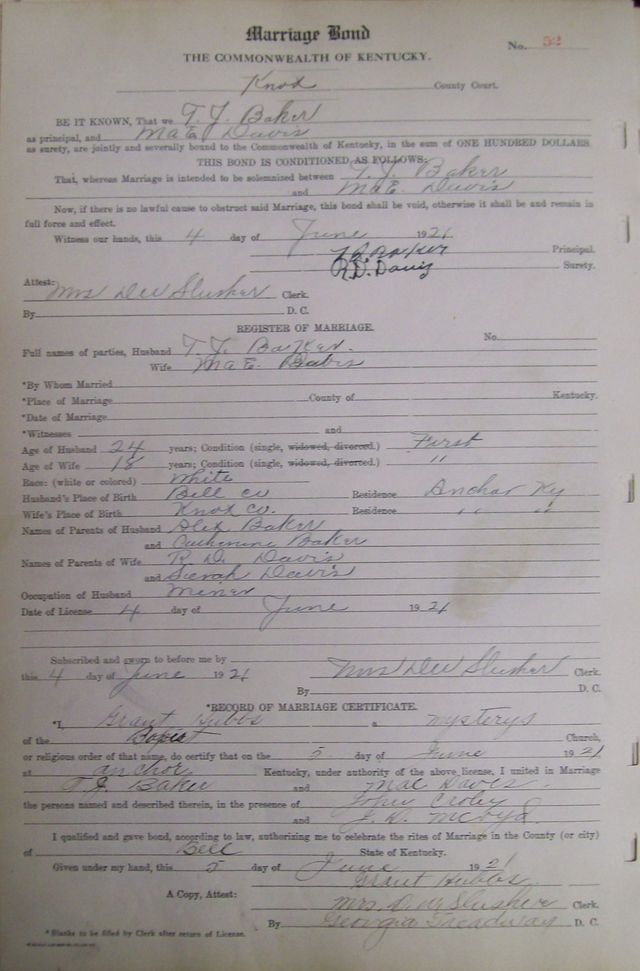 Marriage Bond
No. 52
THE COMMONWEALTH OF KENTUCKY.
Knox County Court.
BE IT KNOWN, That we T. J. Baker
as principal, and Ma E. Davis
as surety, are jointly and severally bound to the Commonwealth of Kentucky, in the sum of ONE HUNDRED DOLLARS
THIS BOND IS CONDITIONED AS FOLLOWS:
That, whereas Marriage is intended to be solemnized between T. J. Baker
and Ma E. Davis
Now, if there is no lawful cause to obstruct said Marriage, this bond shall be void, otherwise it shall be and remain in
full force and effect.
Witness our hands, this 4 day of June 1921
Principal.
R.D. Davis Surety.
Attest:
Mrs DW Slusher Clerk.
By D. C.
REGISTER OF MARRIAGE.
Full names of parties, Husband T. J. Baker. No.
Wife Ma E. Davis
*By Whom Married
*Place of Marriage County of Kentucky.
*Date of Marriage
*Witnesses and
Age of Husband 24 years; Condition (single, widowed, divorced.) First
Age of Wife 18 years; Condition (single, widowed, divorced.) "
Race: (white or colored) White
Husband's Place of Birth Bell co Residence Anchor Ky
Wife's Place of Birth Knox Co. Residence " "
Names of Parents of Husband Alex Baker
and Catherine Baker
Names of Parents of Wife R D. Davis
and Sarah Davis
Occupation of Husband Miner
Date of License 4 day of June 1921
Subscribed and sworn to before me by
this 4 day of June 1921 Mrs DW Slusher Clerk.
By D. C.
*RECORD OF MARRIAGE CERTIFICATE.
*I, Grant Hubbs a mysterys
of the Bapist Church,
or religious order of that name, do certify that on the 5 day of June 1921
at anchor Kentucky, under authority of the above license, I united in Marriage
T J Baker and Mae Davis.
the persons named and described therein, in the presence of
and
I qualified and gave bond, according to law, authorizing me to celebrate the rites of Marriage in the County (or city)
of Bell State of Kentucky.
Given under my hand, this 5 day of June 1921
Grant Hubbs
A Copy, Attest: Mrs. D. W Slusher Clerk.
By Georgia Treadway D. C.
*Blanks to be filled by Clerk after return of License.